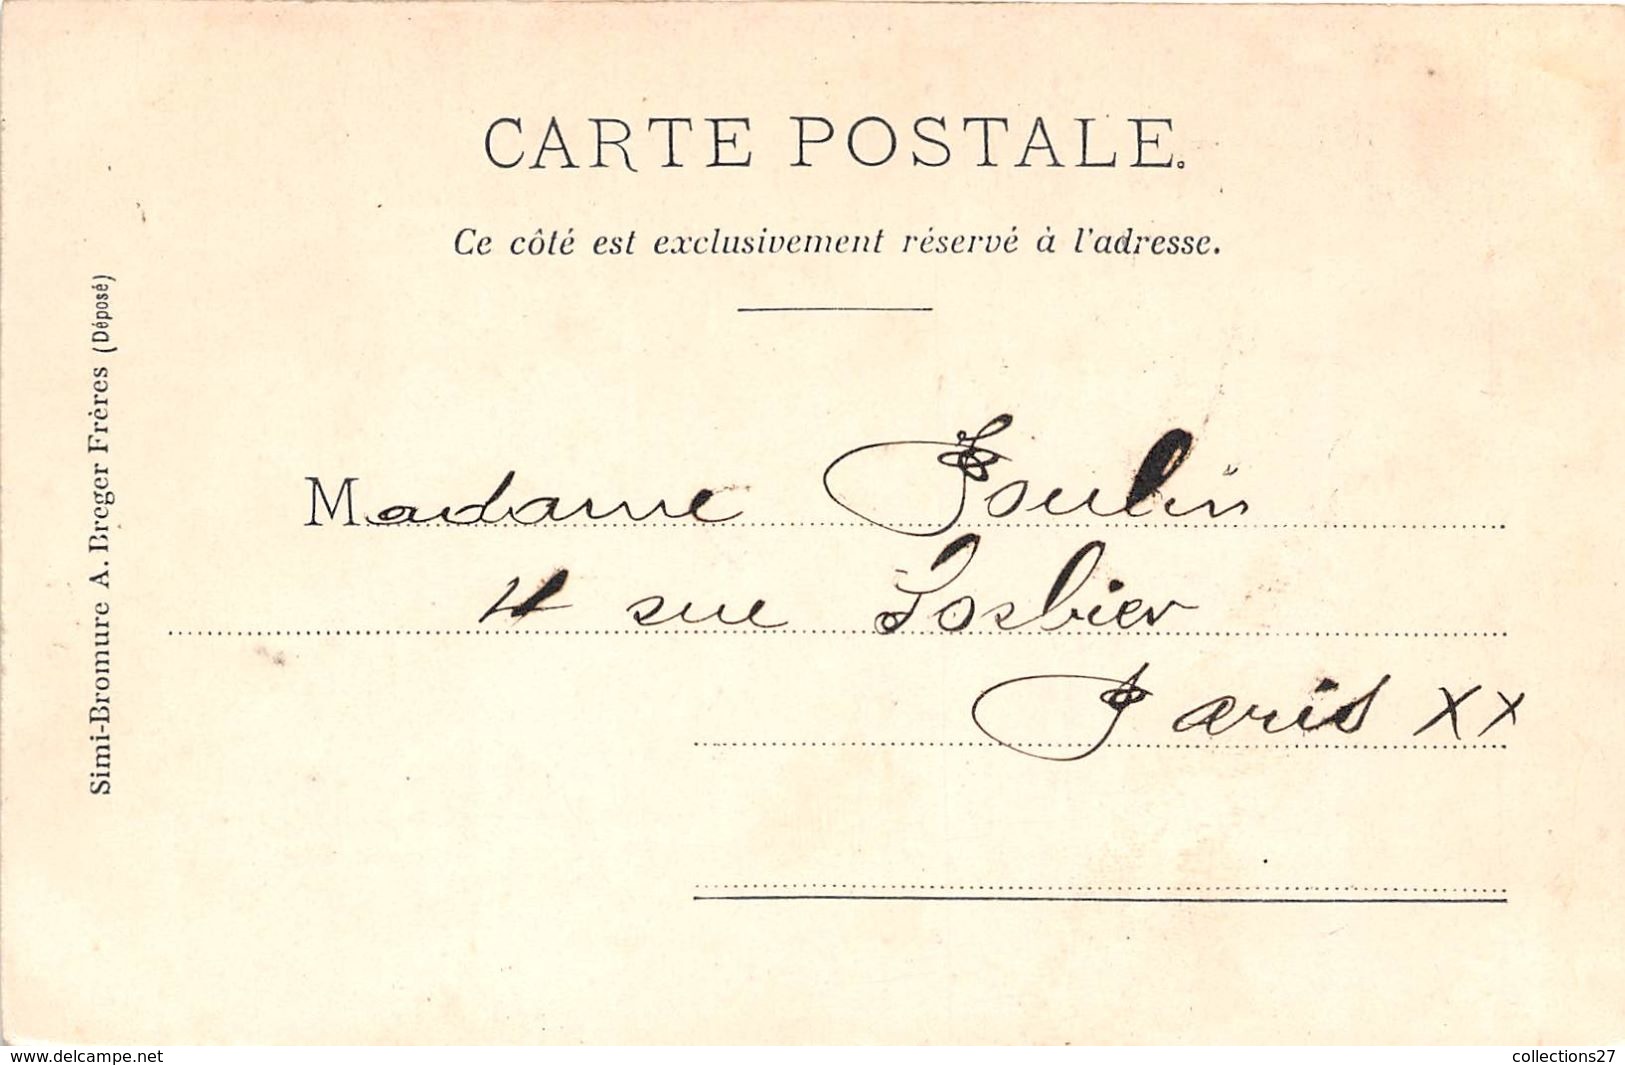 CARTE POSTALE.
Ce côté est exclusivement réservé à l'adresse.
Simi-Bromure A. Breger Frères (Déposé)
Madame Foulin
4 rue Sorbier
Paris XX
www.delcampe.net
collections27